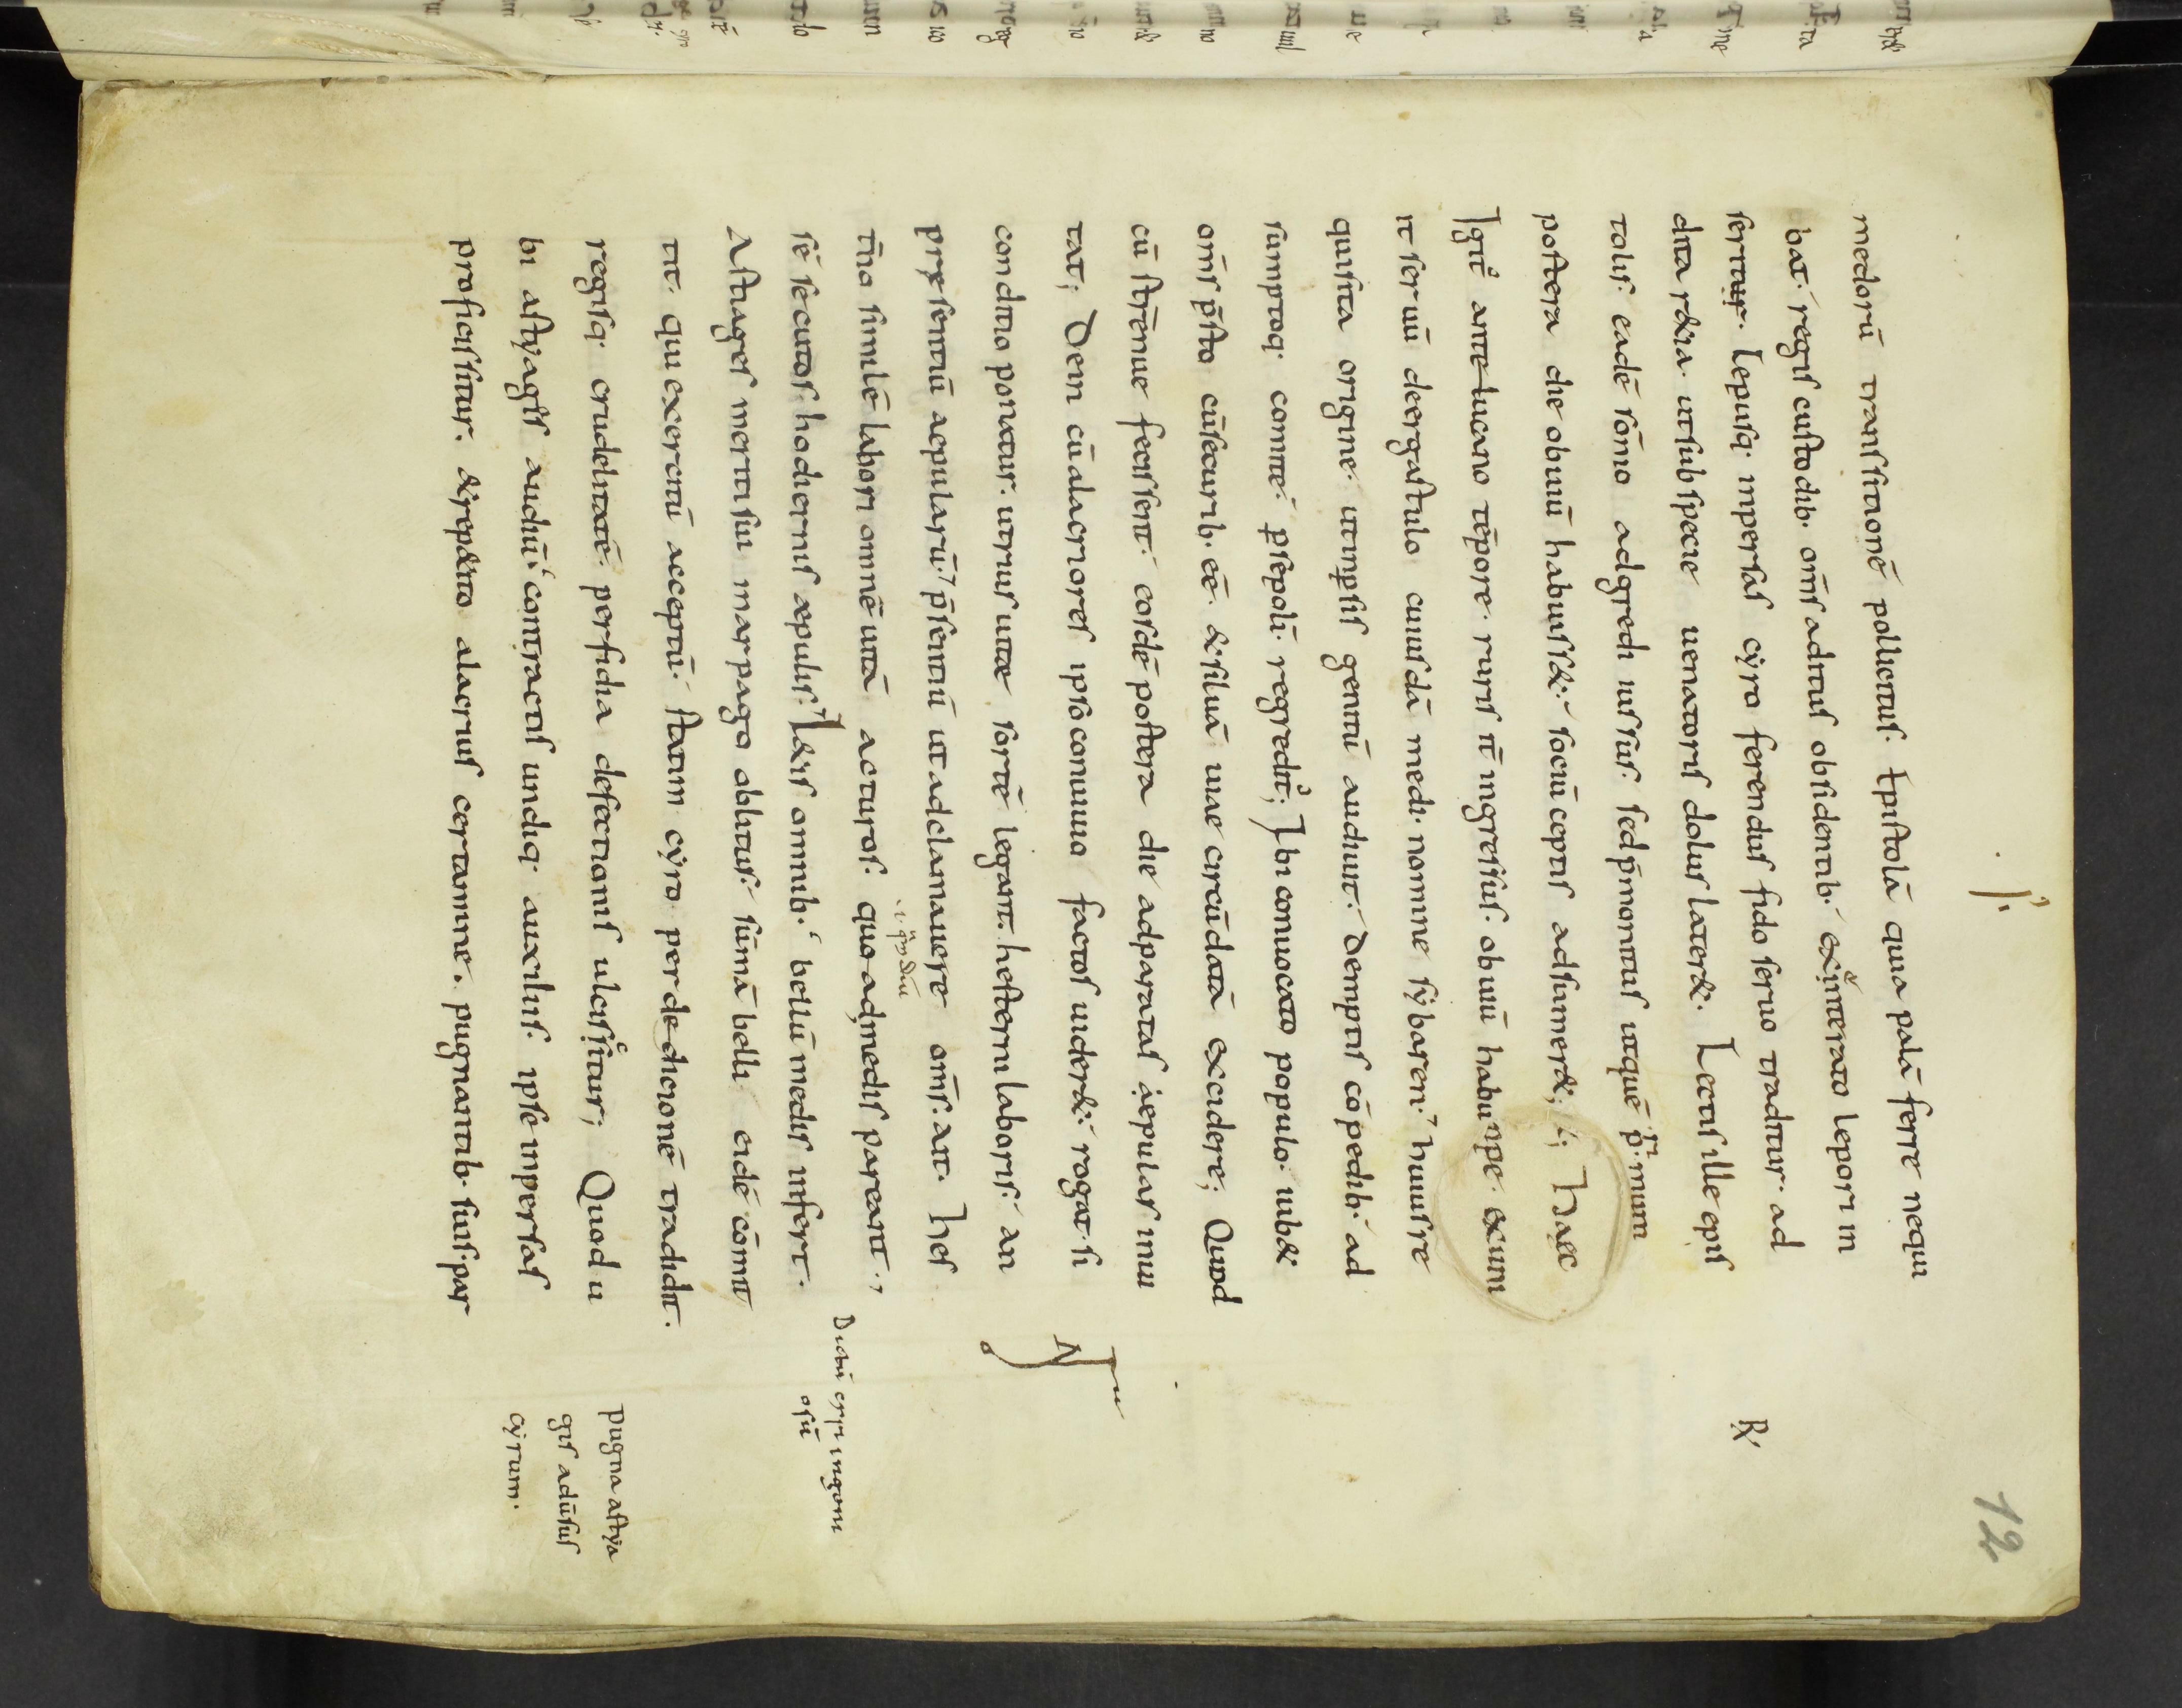 medorū transsitionē pollicitus. Epistolā quia palā ferre nequi
bat. regiis custodib. om̄s aditus obsidentib. exinterato lepori in
seritur. Lepusq. inpersas cyro ferendus fido seruo traditur. ad
dita r&ia. utsub specie uenatoris dolus later&. Lectis ille epis
tolis. eadē sōmo adgredi iussus. sed p̄monitus utquē p̄mum
postera die obuiū habuiss&. sociū ceptis adsumer&; Haec
Igit ante lucano tēpore. ruris it̄ ingressus. obuiū habu ope. exium
it seruū deergastulo cuiusdā medi. nomine sybaren. huiusre
quisita origine. utinpsis genitū audiuit. demptis cōpedib. ad
sumptoq. comite psepoli. regredit; Ibi conuocato populo. iub&
om̄s p̄sto cūsecurib. eē. &siluā uiae circūdatā excidere; Quod
cū strenue fecissent. eosdē postera die adparatas aepulas inui
tat; Dein cūalacriores ipso conuiuio factos uider&. rogat si
conditio ponatur. utrius uitae sortē legant. hesterni laboris. an
presentiū aepularū. p̄sentiū utadclamauere om̄s. ait. hes
t̄no similē labori omnē uitā acturos. quo admedis pareant.
.i. q̄mdiu
sē secutos. hodiernis aepulis. L&is omnib. bellū medis infert.
Dictū cyri ingeni
osū
Astiages meriti sui inarpago oblitus. sūmā belli eidē cōmit
tit. qui exercitū acceptū. statim cyro per de dicionē tradidit.
regisq. crudelitatē. perfidia defectionis ulcissitur; Quod u
bi astyages audiū. contractis undiq. auxiliis. ipse inpersas
proficissitur. &repetito alacrius certamine. pugnantib. suis. par
pugna astya
gis aduersus
cyrum.
R
12